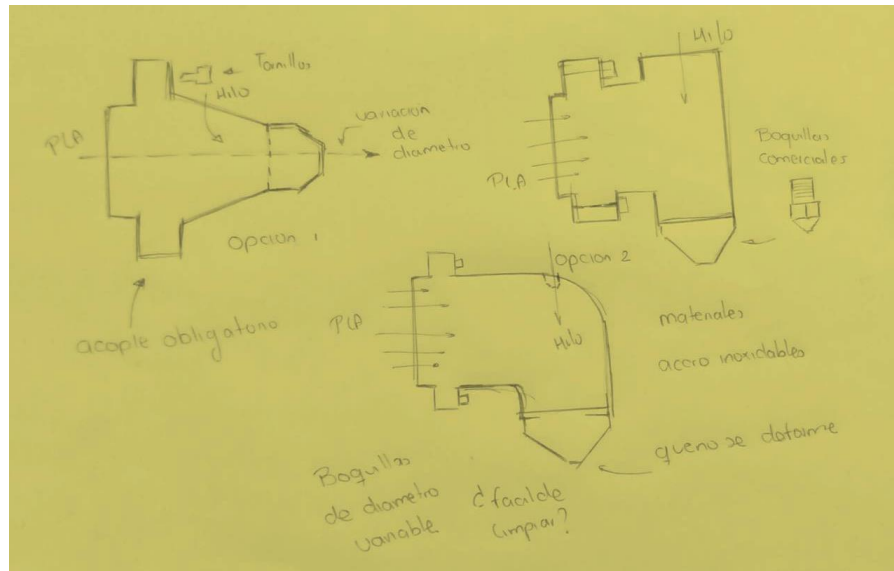 Tornillos
Hilo
PLA
variacion
de
diametro
opcion 1
acople obligatorio
Hilo
PLA
Boquillas
comerciales
opcion 2
PLA
Hilo
materiales
acero inoxidables
que no se deforme
Boquillas
de diametro
variable
¿facil de
limpiar?